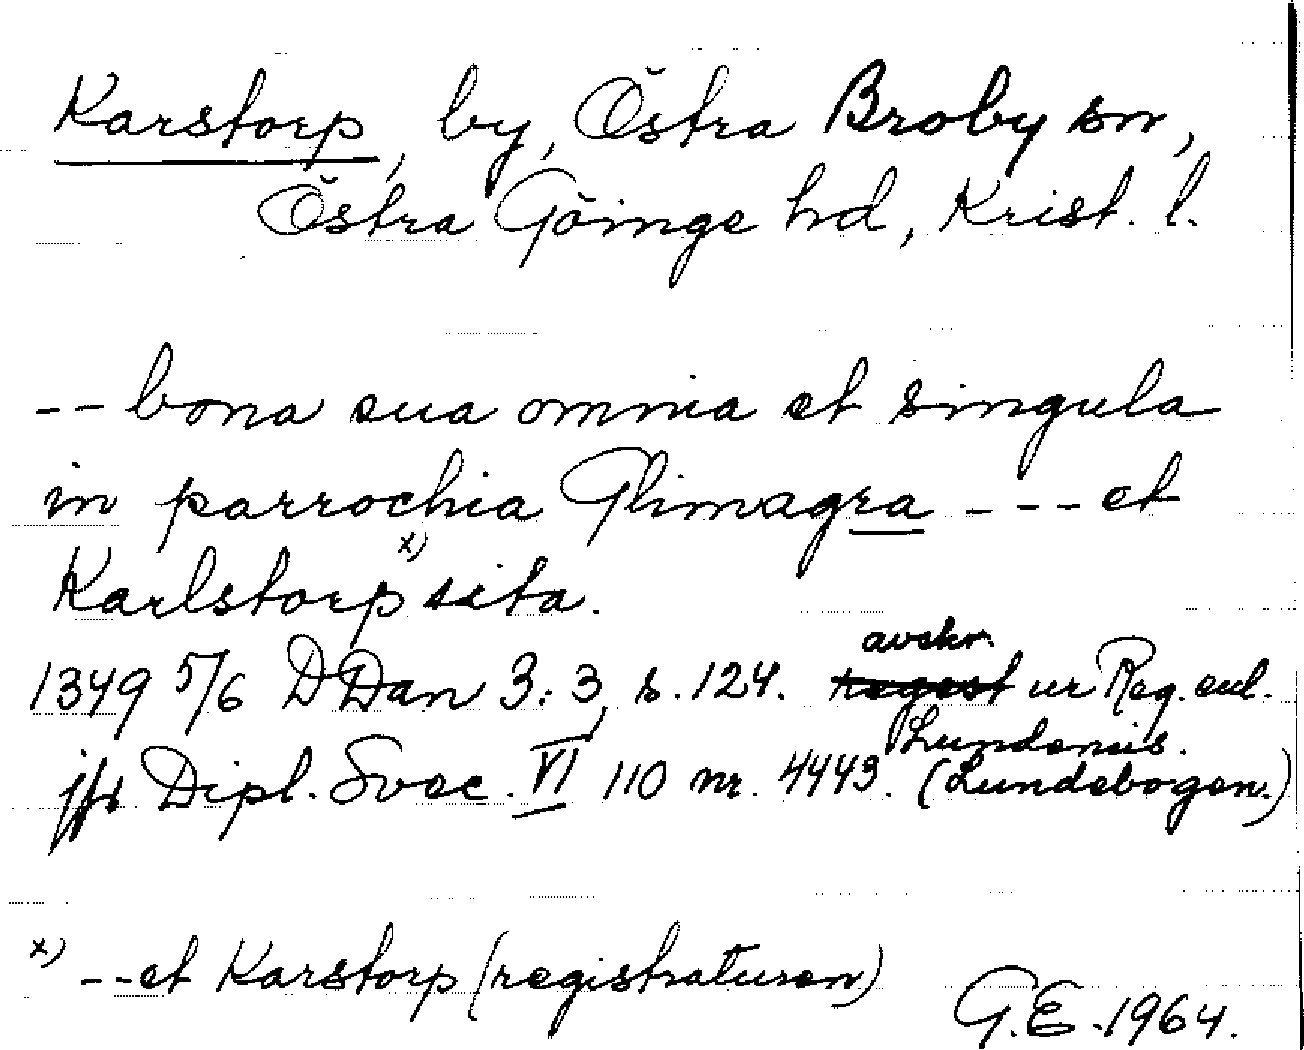 Karstorp, by, Östra Broby sn,
Östra Göinge hd, Krist. l.
-- bona sua omnia et singula
in parrochia Glimagra --- et
Karlstorp x) sita.
1349 5/6 DDan 3:3, s. 124. avskr. ur Reg. eul. Lundensis.
jfr Dipl. Svec. VI 110 nr. 4443. (Lundebogen.)
x) --et Karstorp (registraturen)
G.E. 1964.